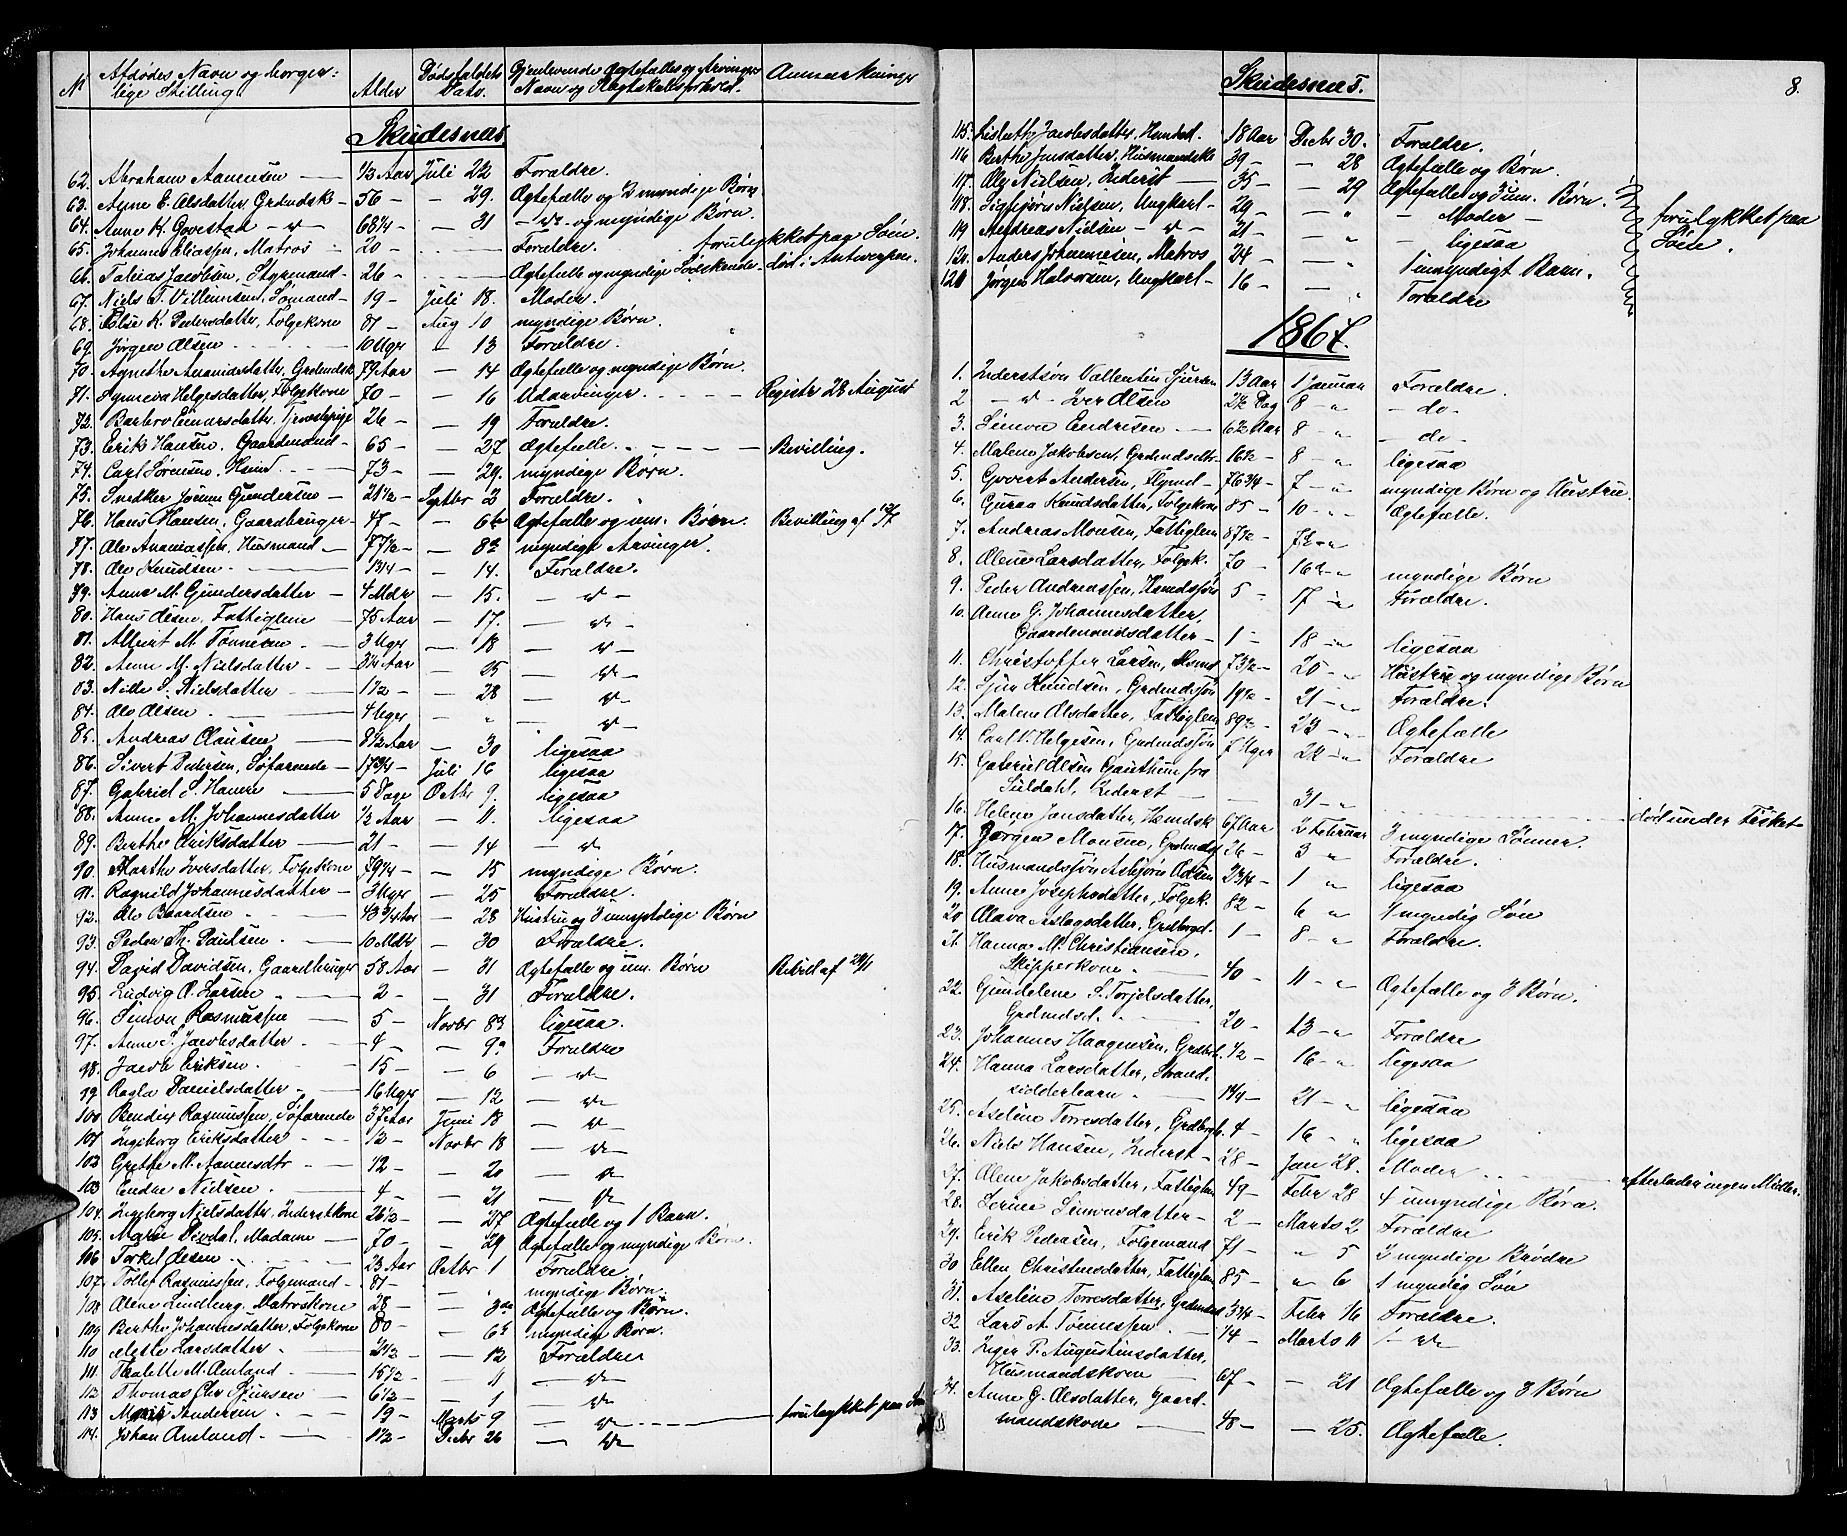 No Afdødes Navn og borger: Alder Dødsfaldets Gjenlevende Ægtefælles og Arvinger Anmærkninger
lige Stilling Dato. Navn og Slægtskabsforhold.
Skudesnæs
62. Abraham Aanensen 1/3 Aar Juli 22 Forældre.
63. Anne E. Olsdatter, Grdmdsk 56 - - 29. Ægtefælle og 2 myndige Børn
64. Anne K. Govestad 68 1/4 - 31 - og myndige Børn.
65. Johannes Eliassen, Matros 20 - Forældre. forulykket paa Søen.
66. Tobias Jacobsen, Styrmand 26 - Ægtefælle og myndige Sødskende død i Antwerpen.
67. Niels T. Villumsen, Sømand 19 - Juli 18. Moder.
68. Else K. Pedersdatter, Folgekone 81 - Aug 10 myndige Børn.
69. Jørgen Olsen 10 Uger - 13 Forældre.
70. Agnethe Ananiasdatter, Grdmdsk 79 Aar - 14 Ægtefælle og myndige Børn.
71. Synneva Helgesdatter, Folgekone 70 - - 16 Udarvinger. Registr 28 August
72. Barbro Einarsdatter, Tjenestepige 26 - - 19 Forældre.
73. Erik Hansen, Gaardmand 65 - - 27 Ægtefælle. Bevilling.
74. Carl Sørensen, Hmd. 73 - - 29. myndige Børn.
75. Snedker Jonas Gundersen 28 1/2 - Septbr 2 Forældre.
76. Hans Hansen, Gaardbruger 47 - - 6 Ægtefælle og um. Børn. Bevilling af
77. Ole Ananiassen, Husmand 77 1/2 - - 8 myndige Arvinger.
78. Ole Knudsen 1 3/4 - - 14. Forældre.
79. Anne M. Gundersdatter 4 Mdr - 15.
80. Hans Olsen, Fattiglem 75 Aar - 17.
81. Albert M. Tønnesen 3 Uger - 18
82. Anne M. Nielsdatter 3 1/4 Aar - 25
83. Nille S. Nielsdatter 1 1/2 - - 28
84. Ole Olsen 4 Uger - "
85. Andreas Clausen 8 1/2 Aar - 30 ligesaa
86. Sivert Pedersen, Søfarende 17 3/4 - Juli 16 ligesaa
87. Gabriel S. Hamre 5 Dage Octbr 9. ligesaa
88. Anne M. Johannesdatter 1/2 Aar - 11. ligesaa
89. Berthe Eriksdatter 21 - - 14
90. Marthe Iversdatter, Folgekone 79 1/4 - 15 myndige Børn.
91. Ragnild Johannesdatter 3 Uger - 25 Forældre.
92. Ole Baardsen 43 3/4 Aar - 28 Hustru og 3 umyndige Børn
93. Peder Th. Paulsen. 10 Mdr - 30 Forældre.
94. David Davidsen, Gaardbruger 58 Aar - 31 Ægtefælle og um. Børn Bevill af
95. Ludvig O. Larsen 2 - - 31 Forældre.
96. Simon Rasmussen 5 - Novbr 8 ligesaa.
97. Anne S. Jacobsdatter 4 - - 9 Forældre
98. Jacob Eriksen. 15 - - 6
99 Ragla Danielsdatter 16 Uger - 12
100 Bendix Rasmussen, Søfarende 37 Aar Juni 18
101 Ingeborg Eriksdatter 12 - Novbr 18
102 Grethe M. Aanensdtr 12 - - 20
103 Endre Nielsen. 4 - - 21
104. Ingeborg Nielsdatter, Inderstkone 26 1/2 - - 27 Ægtefælle og 1 Barn.
105. Maren Dirdal, Madame 70 - - 29 Ægtefælle og myndige Børn.
106 Torkel Olsen 23 Aar Octbr 1 Forældre.
107. Tollef Rasmussen, Folgemand 81 - myndige Børn.
108 Olene Lindberg, Matroskone 28 - - 3 Ægtefælle og Børn.
109 Berthe Johannesdatter, Folgekone 80 - - 6 myndige Børn.
110 Mette Larsdatter 2 1/2 - - 12 Forældre
111. Thalette M. Amland 15 1/2 - - 11
112 Thomas Chr Sjursen 6 1/2 - - 1
113 Andersen 19 - Marts 9 forulykket paa Søen
114. Johan Amland 1 1/2 - Decbr 26
Skudesnæs. 8.
115. Lisbeth Jacobsdatter, Hmdsd. 18 Aar Decbr 30. Forældre.
116 Berthe Jonsdatter, Husmandske 39 - - 28 Ægtefælle og Børn.
117. Ole Nielsen, Inderst 35 - - 29 Ægtefælle og 3 um. Børn.
118. Sigbjørn Nielsen, Ungkarl 29 - - " - Moder - forulykket paa
119 Andreas Nielsen 21 - - " - ligesaa Søen.
120. Anders Johannesen, Matros 24 - - " 1 umyndigt Barn.
121 Jørgen Halvorsen, Ungkarl 16 - - " Forældre
1867.
1. Inderstsøn Vallentin Sjursen 13 Aar 1 Januar Forældre.
2 Iver Olsen Dag 8 - " - do -
3. Simon Endresen 6 1/2 Aar 8 - " - do -
4. Malene Jakobsen, Grdmdsdtr 16 1/2 - 8 - " ligesaa
5. Govert Andersen, Flgmd 76 3/4 - 7 - " myndige Børn og Hustru.
6. Guraa Knudsdatter, Folgekone 85 - 10 - " Ægtefælle.
7. Andreas Monsen, Fattiglem 87 1/2 -
8. Olene Larsdatter, Folgek. 70 - 16 - " myndige Børn
9. Peder Andreassen, Hmdssøn 5 - 17 - " Forældre.
10. Anne G. Johannesdatter,
Gaardmandsdatter 1 - 18 - " ligesaa
11. Christoffer Larsen, Hsmd 73 1/2 - 20 - " Hustru og myndige Børn
12. Sjur Knudsen, Grdmdssøn 19 1/2 - 21 - " Forældre.
13. Malene Olsdatter, Fattiglem 89 1/2 - 23 - " Ægtefælle
14. Carl V. Helgesen, Grdmdssøn 7 Uger 24 - " Forældre
15. Gabriel Olsen Gauthun fra
Suldahl, Inderst 31 - " død under Fisket
16. Helene Jonsdatter, Hsmdsk 67 Aar 2 Februar 3 myndige Sønner.
17. Jørgen Monsen, Grdmdsf 26 - 3 " Forældre.
18. Husmandssøn Asbjørn Odsen 23 1/4 - 1 " ligesaa
19. Anne Josephsdatter, Folgek. 82 - 6 " 1 myndig Søn
20 Olava Aslagsdatter, Grdbrgd. 1 - 8 - " Forældre.
21. Hanna M. Christiansen,
Skipperkone. 40 - 11 - " Ægtefælle og 3 Børn.
22. Gundelene S. Torjelsdatter,
Grdmdsd. 20 - 13 - " Forældre
23. Johannes Haagensen, Grdbrb. 1/2 - 16 - " ligesaa
24. Hanna Larsdatter, Strand-
sidderbarn 1 1/4 - 21 - " ligesaa
25. Aseline Torresdatter, Grdbrgb. 4 - 16 - " ligesaa
26. Niels Hansen, Inderst 28 - Jan 28. Moder efterlader ingen Midler.
27. Olene Jakobsdatter, Fattiglem 49 - Febr 28 4 umyndige Børn.
28. Serine Simonsdatter 2 - Marts 2 Forældre
29. Erik Pedersen, Folgemand 71 - " 5 2 myndige Brødre
30 Ellen Christensdatter, Fattiglem 85 - " 6 1 myndig Søn
31. Aseline Torresdatter, Grdmdsd 3 3/4 - Febr 16 Forældre.
32 Lars A. Tønnessen. 14 - Marts 11
33. Inger P. Augustinsdatter,
Husmandskone 67 - - 21 Ægtefælle og 3 Børn
34. Anne G. Olsdatter, Gaard-
mandskone 48 - - 25. Ægtefælle.